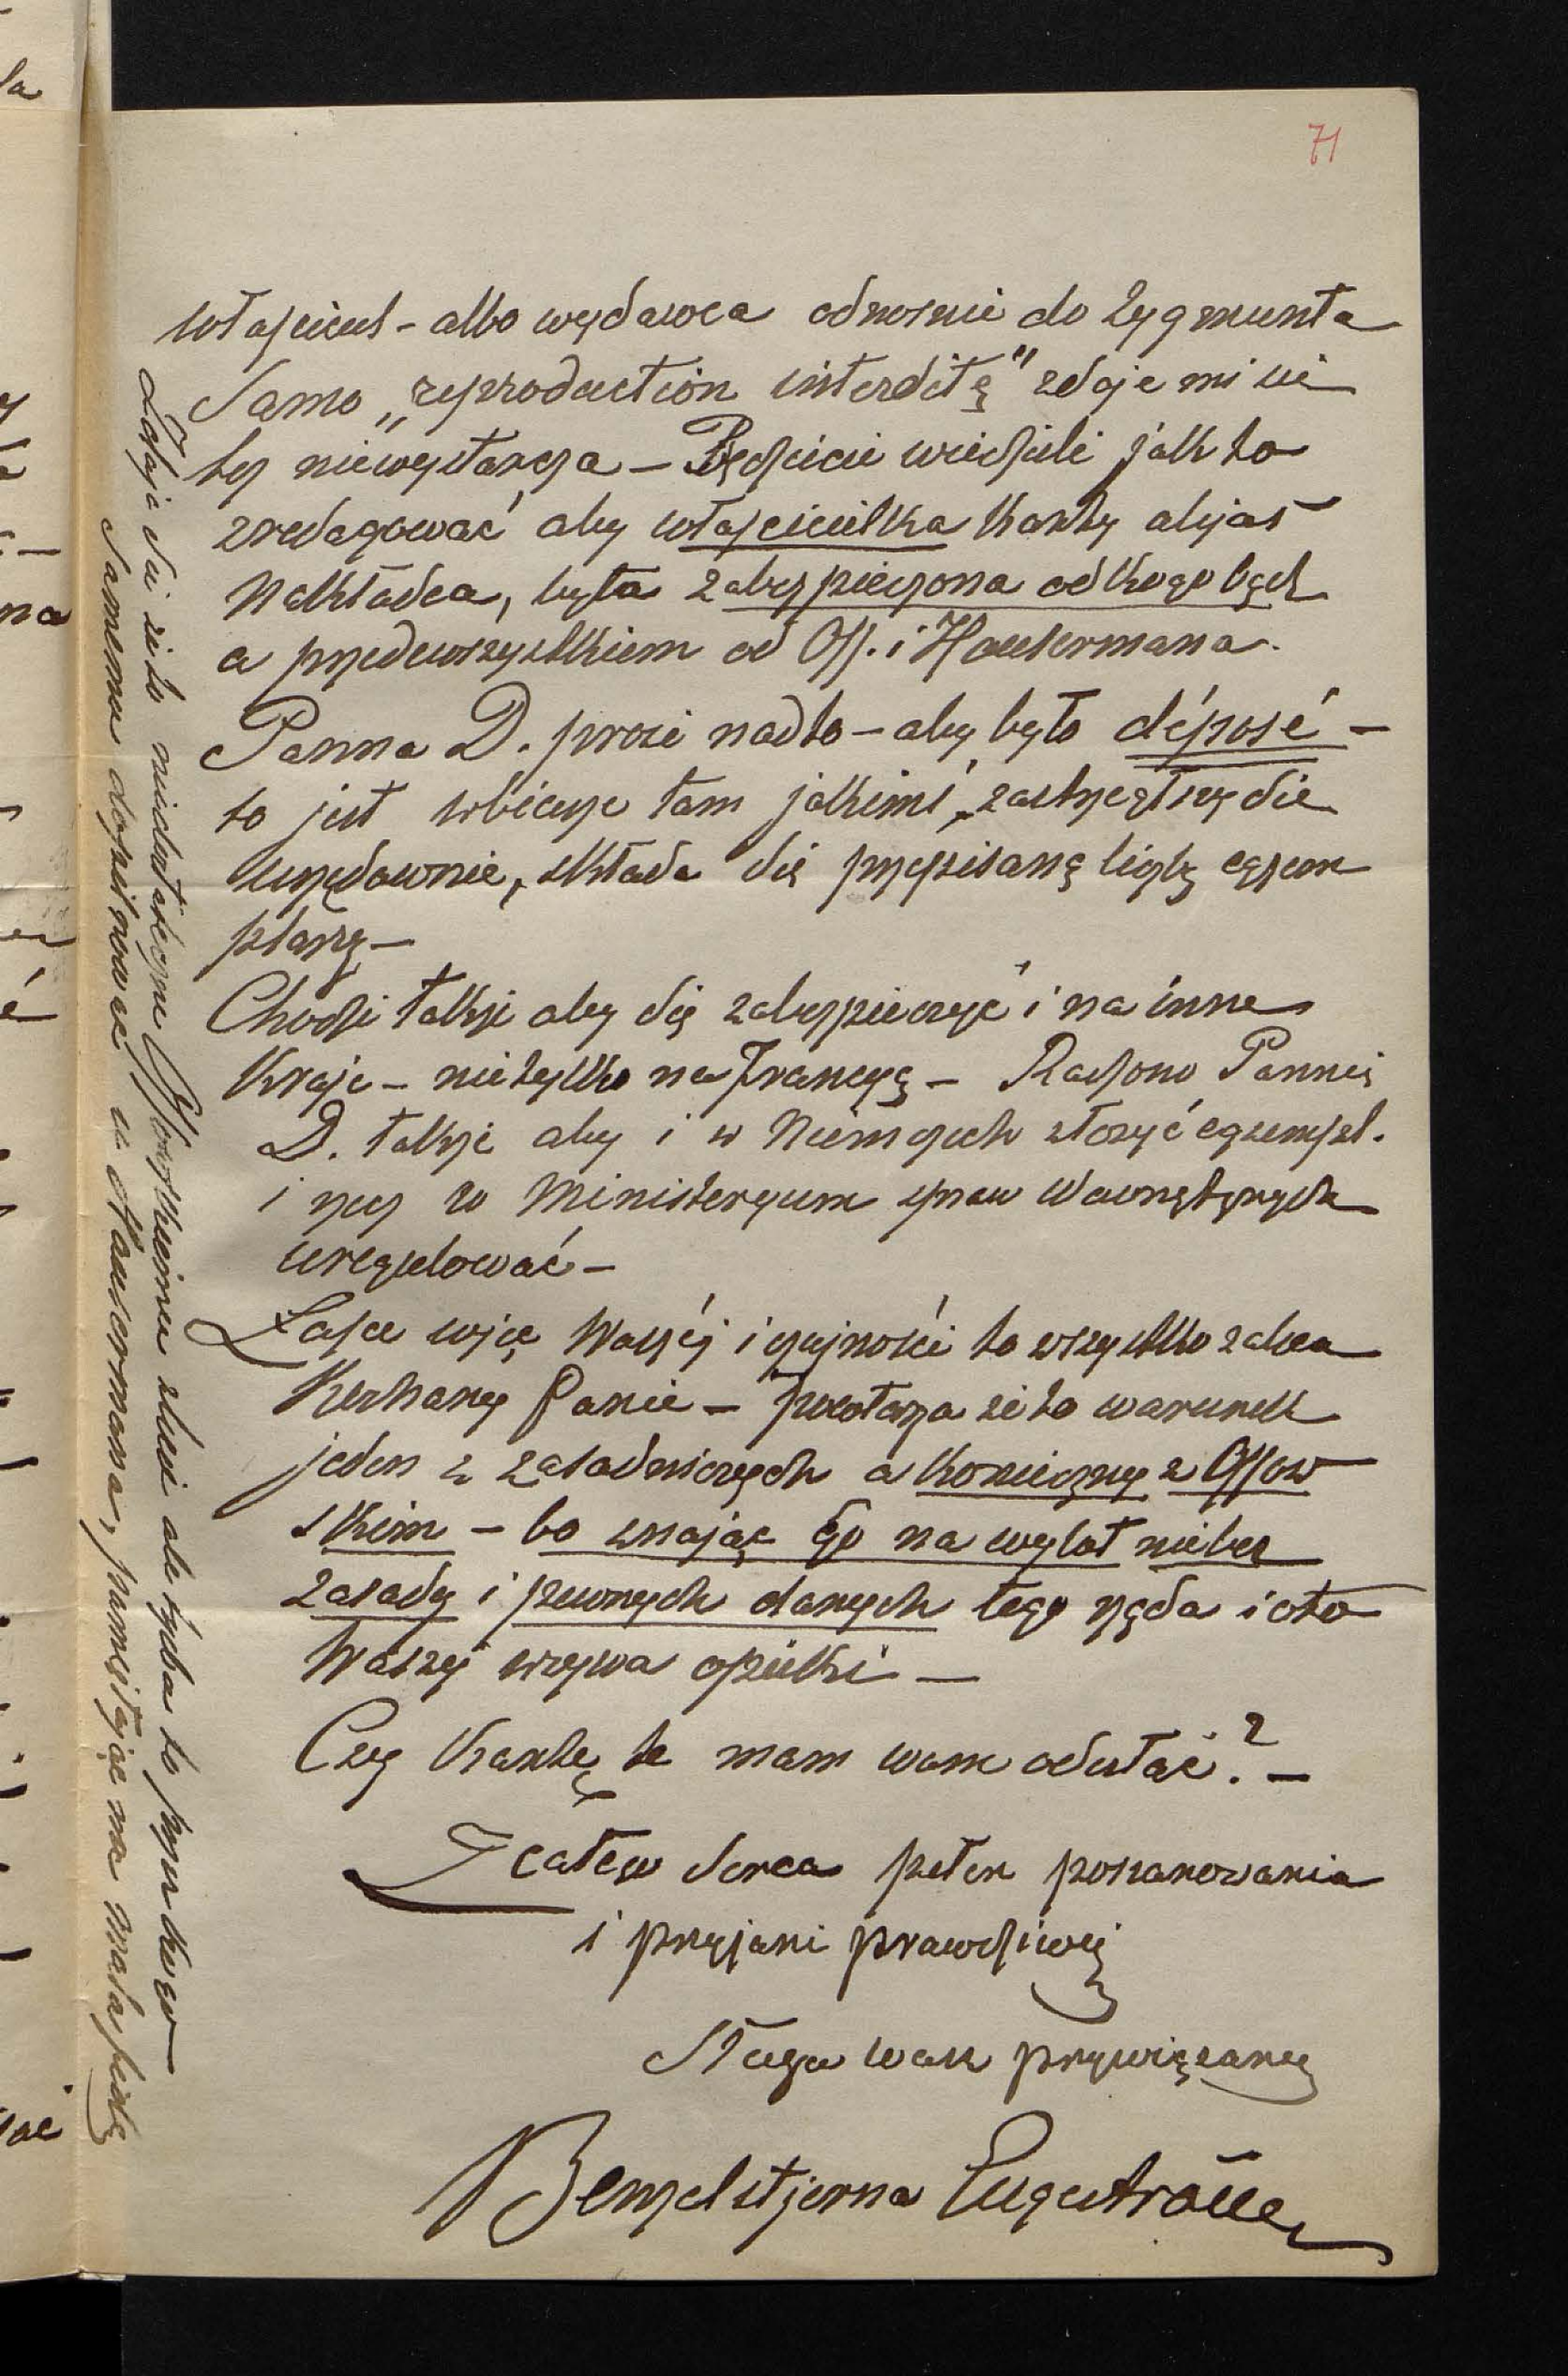 71
właściciel - albo wydawca odnośnie do Zygmunta
Samo „reproduction interditę" zdaje mi się
też niewystarcza - Będziecie wiedzieli jak to
zredagować aby właścicielka Kartę alijas
Nakładca, była zabezpieczona od kogo bądź
a przedewszystkiem od Oss. i Hausermana.
Panna D. prosi nadto - aby było déposé -
to jest w biurze tam jakimś, zastrzegłszy się
urzędownie, składa się przepisaną liczbę egzem
plarzy -
Chodzi także aby się zabezpieczyć i na inne
Kraje - nietylko na Francyę - Radzono Pannie
D. także aby i w Niemczech złożyć egzempl.
i rzecz w Ministeryum spraw Wewnętrznych
uregulować -
Łasce więc Waszéj i czujności to wszystko zaleca
Kochany Panie - powtarza że to warunek
jeden z zasadniczych a konieczny z Ossow
skim - bo znając Go na wylot niebez
zasady i pewnych danych tego żąda i oto
Waszej wzywa opieki -
Czy Kartę tę mam wam odesłać? -
Z całego Serca pełen poszanowania
i przyjaźni prawdziwej
Sługa wasz przywiązany
Benzelstjerna Engeström
Zdaje się że to niedostateczne Ossowskiemu służy ale trzeba to przyrzeczenie
Samemu dopilnować u Hausermana, pamiętając na